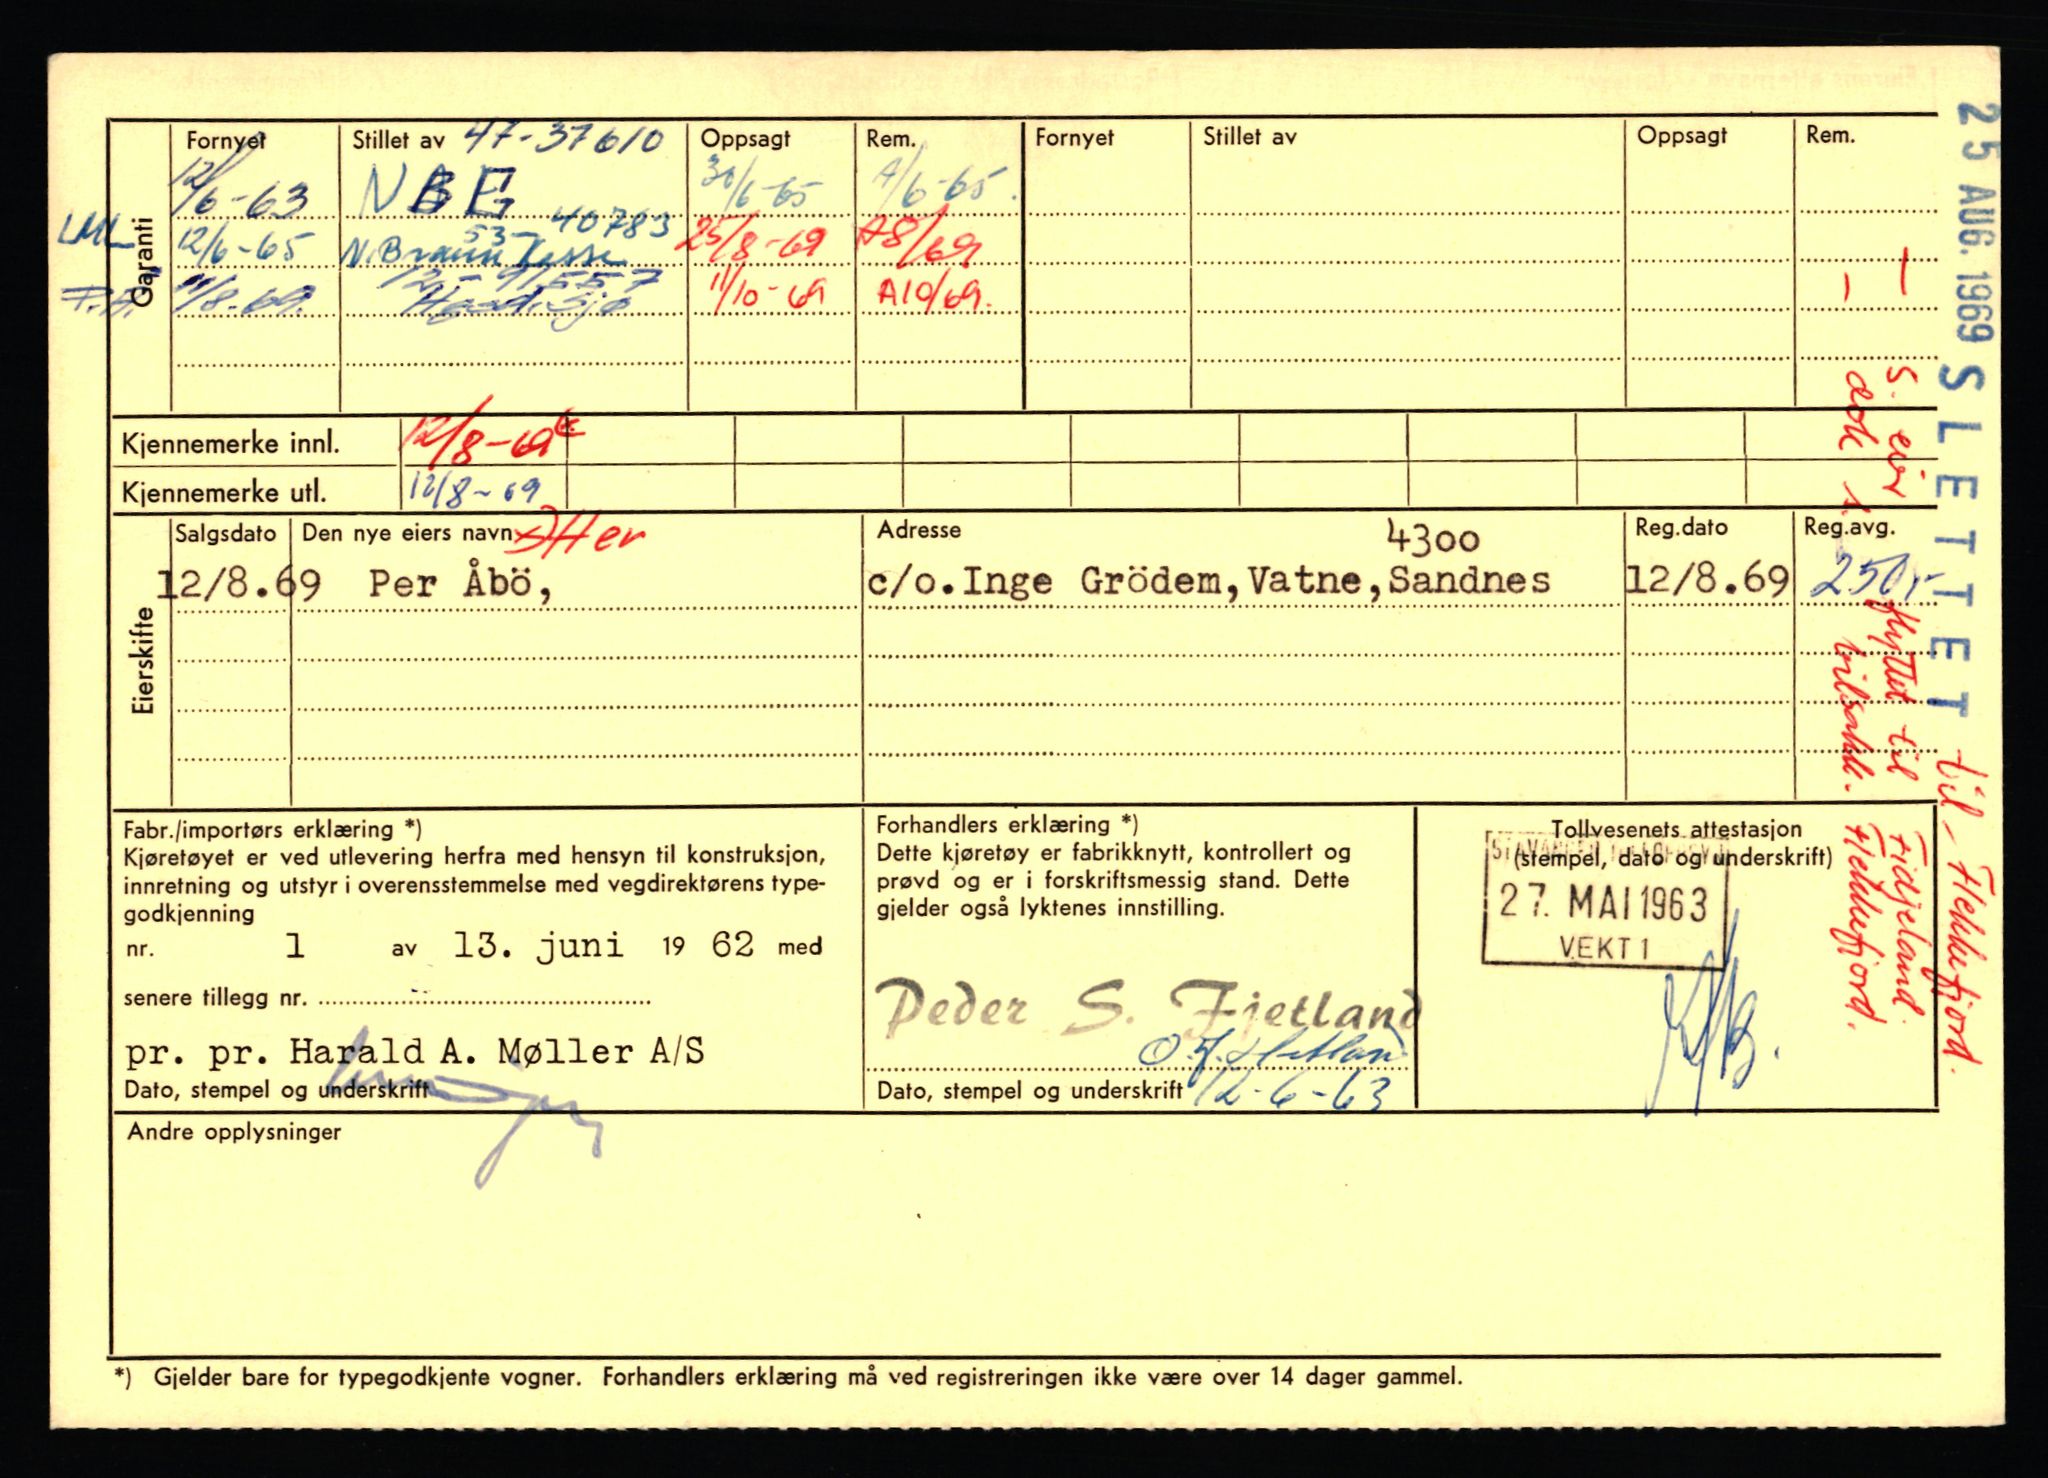 Garanti
Fornyet Stillet av 47-37610 Oppsagt Rem. Fornyet Stillet av Oppsagt Rem.
12/6-63 NBE 30/6-65 A/6-65.
LML 12/6-65 N.Brann Kasse 53-40783 25/8-69 A8/69
11/8-69. 12-91557 11/10-69 A10/69.
Kjennemerke innl. 12/8-69
Kjennemerke utl. 12/8-69
Eierskifte
Salgsdato Den nye eiers navn Adresse Reg.dato Reg.avg.
4300
12/8.69 Per Åbö, c/o.Inge Grödem,Vatne,Sandnes 12/8.69 250,-
Fabr./importørs erklæring *)
Kjøretøyet er ved utlevering herfra med hensyn til konstruksjon,
innretning og utstyr i overensstemmelse med vegdirektørens type-
godkjenning
nr. 1 av 13. juni 19 62 med
senere tillegg nr.
pr. pr. Harald A. Møller A/S
Dato, stempel og underskrift
Forhandlers erklæring *)
Dette kjøretøy er fabrikknytt, kontrollert og
prøvd og er i forskriftsmessig stand. Dette
gjelder også lyktenes innstilling.
Peder S. Fjetland
Dato, stempel og underskrift 12-6-63
Tollvesenets attestasjon
(stempel, dato og underskrift)
27. MAI 1963
VEKT 1
Andre opplysninger
*) Gjelder bare for typegodkjente vogner. Forhandlers erklæring må ved registreringen ikke være over 14 dager gammel.
25 AUG. 1969 SLETTET til Flekkefjord.
S. eier flyttet til Fidjeland.
Flekkefjord.